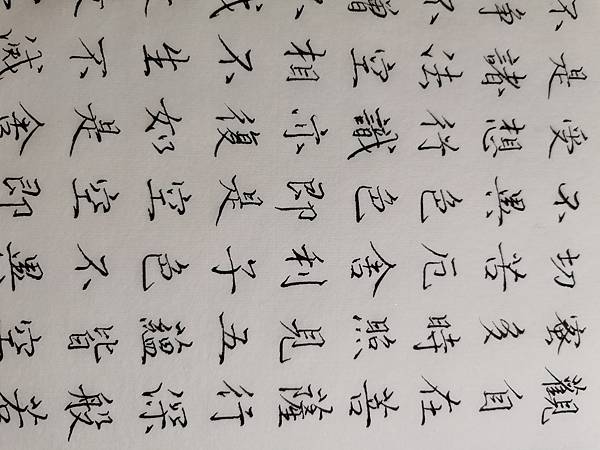 觀自在菩薩行深般若
蜜多時照見五蘊皆空
切苦厄舍利子色不異
不異色色即是空空即
受想行識亦復如是舍
是諸法空相不生不滅
不淨不增不減